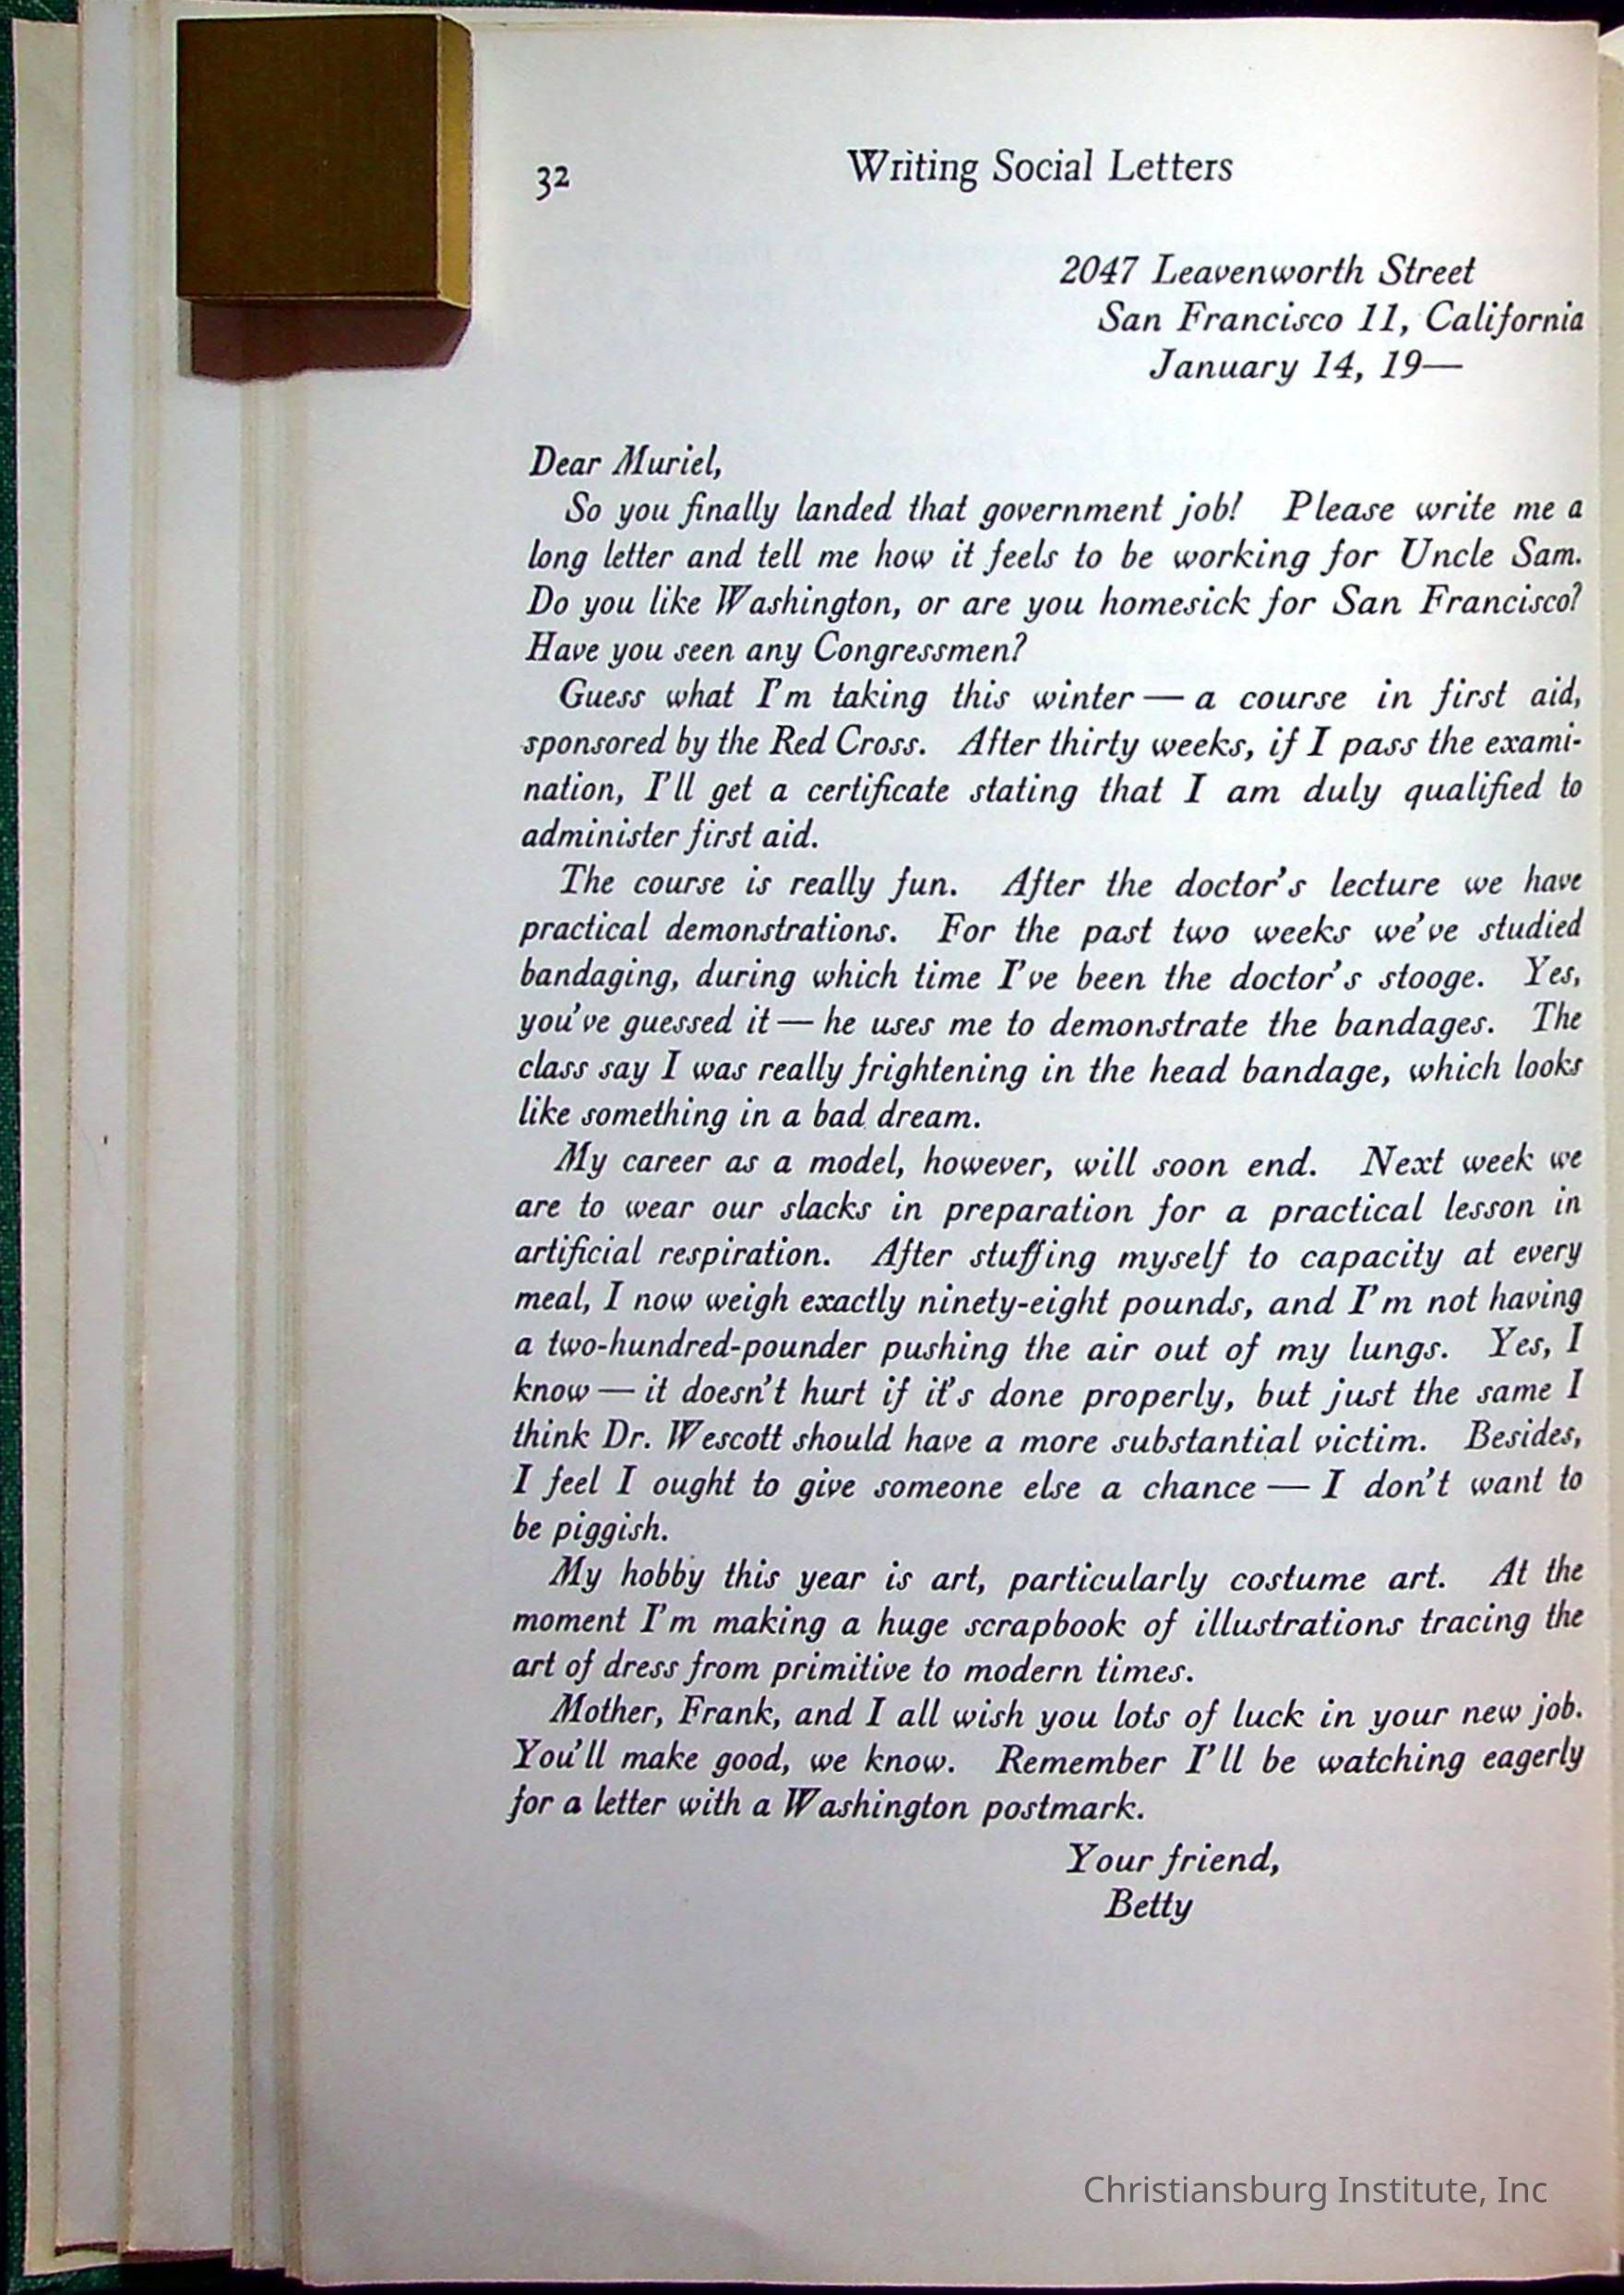 32
Writing Social Letters
2047 Leavenworth Street
San Francisco 11, California
January 14, 19—
Dear Muriel,
So you finally landed that government job! Please write me a
long letter and tell me how it feels to be working for Uncle Sam.
Do you like Washington, or are you homesick for San Francisco?
Have you seen any Congressmen?
Guess what I'm taking this winter — a course in first aid,
sponsored by the Red Cross. After thirty weeks, if I pass the exami-
nation, I'll get a certificate stating that I am duly qualified to
administer first aid.
The course is really fun. After the doctor's lecture we have
practical demonstrations. For the past two weeks we've studied
bandaging, during which time I've been the doctor's stooge. Yes,
you've guessed it — he uses me to demonstrate the bandages. The
class say I was really frightening in the head bandage, which looks
like something in a bad dream.
My career as a model, however, will soon end. Next week we
are to wear our slacks in preparation for a practical lesson in
artificial respiration. After stuffing myself to capacity at every
meal, I now weigh exactly ninety-eight pounds, and I'm not having
a two-hundred-pounder pushing the air out of my lungs. Yes, I
know — it doesn't hurt if it's done properly, but just the same I
think Dr. Wescott should have a more substantial victim. Besides,
I feel I ought to give someone else a chance — I don't want to
be piggish.
My hobby this year is art, particularly costume art. At the
moment I'm making a huge scrapbook of illustrations tracing the
art of dress from primitive to modern times.
Mother, Frank, and I all wish you lots of luck in your new job.
You'll make good, we know. Remember I'll be watching eagerly
for a letter with a Washington postmark.
Your friend,
Betty
Christiansburg Institute, Inc